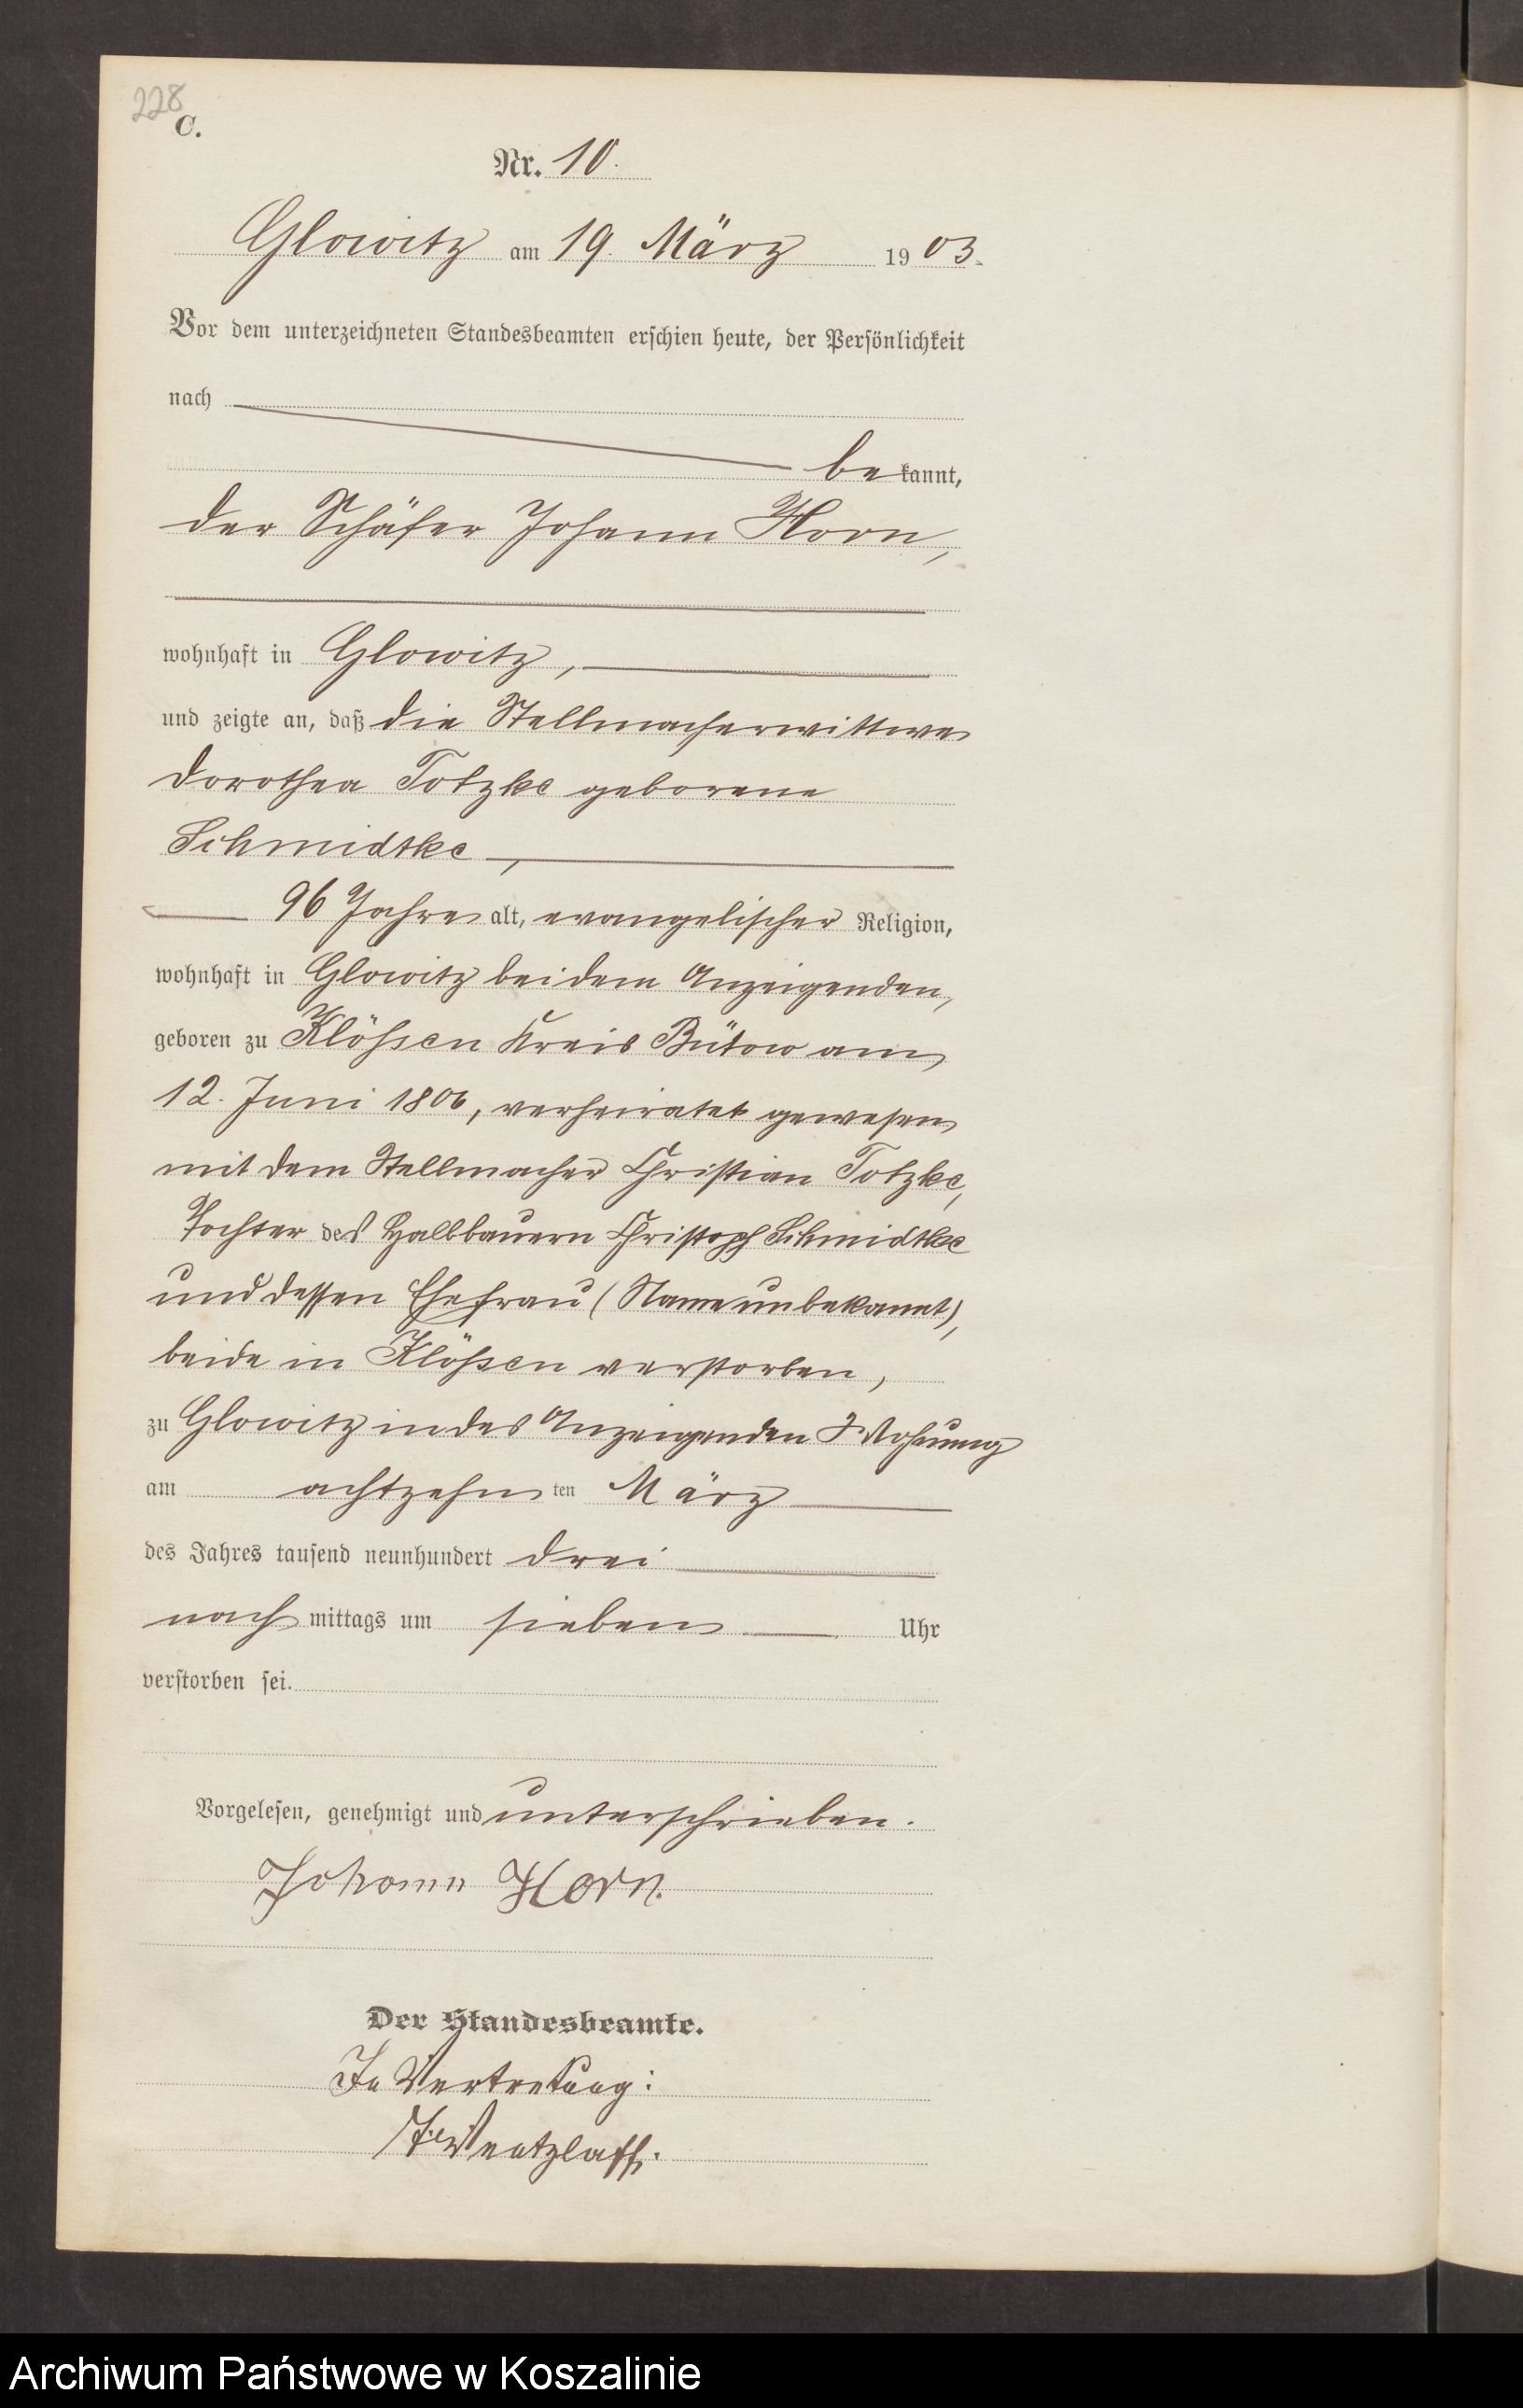 228
C.
Nr. 10.
Glowitz am 19. März 1903.
Vor dem unterzeichneten Standesbeamten erschien heute, der Persönlichkeit
nach
bekannt,
der Schäfer Johann Horn,
wohnhaft in Glowitz,
und zeigte an, daß die Stellmacherwittwe
Dorothea Totzke geborene
Schmidtke,
96 Jahre alt, evangelischer Religion,
wohnhaft in Glowitz bei dem Anzeigenden,
geboren zu Klößen Kreis Bütow am
12. Juni 1806, verheiratet gewesen
mit dem Stellmacher Christian Totzke,
Tochter des Halbbauern Christoph Schmidtke
und dessen Ehefrau (Name unbekannt),
beide in Klößen verstorben,
zu Glowitz in des Anzeigenden Wohnung
am achtzehnten März
des Jahres tausend neunhundert drei
nachmittags um sieben Uhr
verstorben sei.
Vorgelesen, genehmigt und unterschrieben.
Johann Horn.
Der Standesbeamte.
In Vertretung:
Wentzlaff.
Archiwum Państwowe w Koszalinie